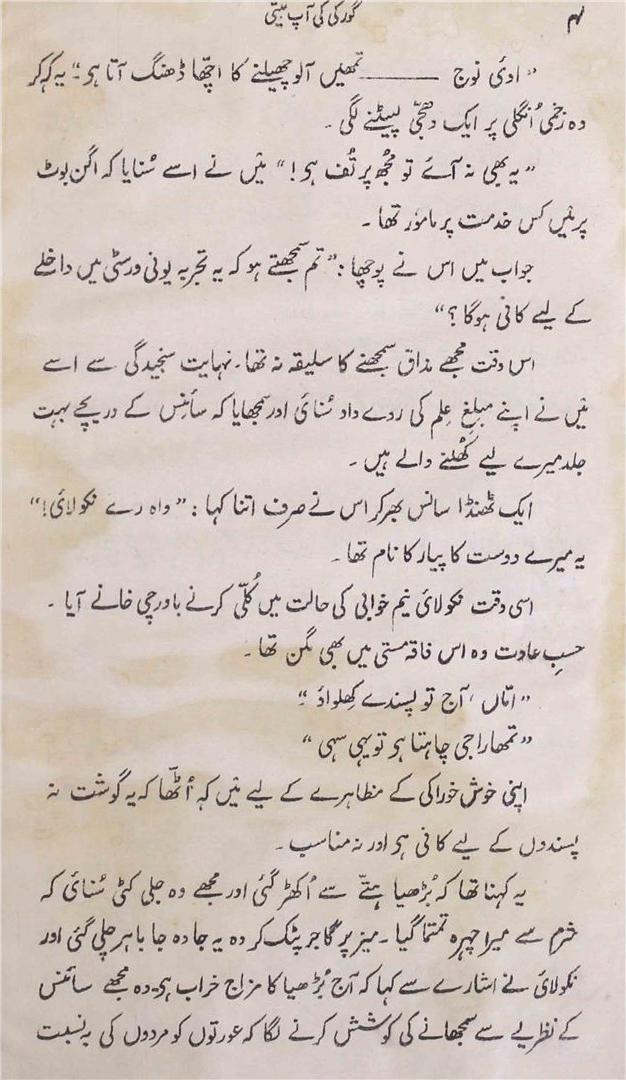 ۴ گورکی کی آپ بیتی
”اوئی نوج ——— تمھیں آلو چھیلنے کا اچھا ڈھنگ آتا ہو“ یہ کہہ کر
وہ زخمی اُنگلی پر ایک دھجی لپیٹنے لگی ۔
”یہ بھی نہ آئے تو مجھ پر تُف ہو!“ مَیں نے اسے سُنایا کہ اگن بوٹ
پر مَیں کس خدمت پر مامور تھا ۔
جواب میں اس نے پوچھا: ”تم سمجھتے ہو کہ یہ تجربہ یونی ورسٹی میں داخلے
کے لیے کافی ہوگا؟“
اس وقت مجھے مذاق سمجھنے کا سلیقہ نہ تھا۔ نہایت سنجیدگی سے اسے
مَیں نے اپنے مبلغِ عِلم کی روے داد سُنائی اور سمجھایا کہ سائنس کے دریچے بہت
جلد میرے لیے کُھلنے والے ہیں ۔
ایک ٹھنڈا سانس بھر کر اس نے صرف اتنا کہا: ”واہ رے نکولائی!“
یہ میرے دوست کا پیار کا نام تھا ۔
اسی وقت نکولائی نیم خوابی کی حالت میں کُلّی کرنے باورچی خانے آیا ۔
حسبِ عادت وہ اس فاقہ مستی میں بھی مگن تھا ۔
”امّاں، آج تو پسندے کِھلواؤ“
”تمھارا جی چاہتا ہو تو یہی سہی“
اپنی خوش خوراکی کے مظاہرے کے لیے مَیں کہ اُٹھا کہ یہ گوشت نہ
پسندوں کے لیے کافی ہو اور نہ مناسب ۔
یہ کہنا تھا کہ بُڑھیا ہتّے سے اُکھڑ گئی اور مجھے وہ جلی کٹی سُنائی کہ
شرم سے میرا چہرہ تمتما گیا ۔ میز پر گاجر پٹک کر وہ یہ جا وہ جا باہر چلی گئی اور
نکولائی نے اشارے سے کہا کہ آج بُڑھیا کا مزاج خراب ہو۔ وہ مجھے سائنس
کے نظریے سے سمجھانے کی کوشش کرنے لگا کہ عورتوں کو مردوں کی بہ نسبت